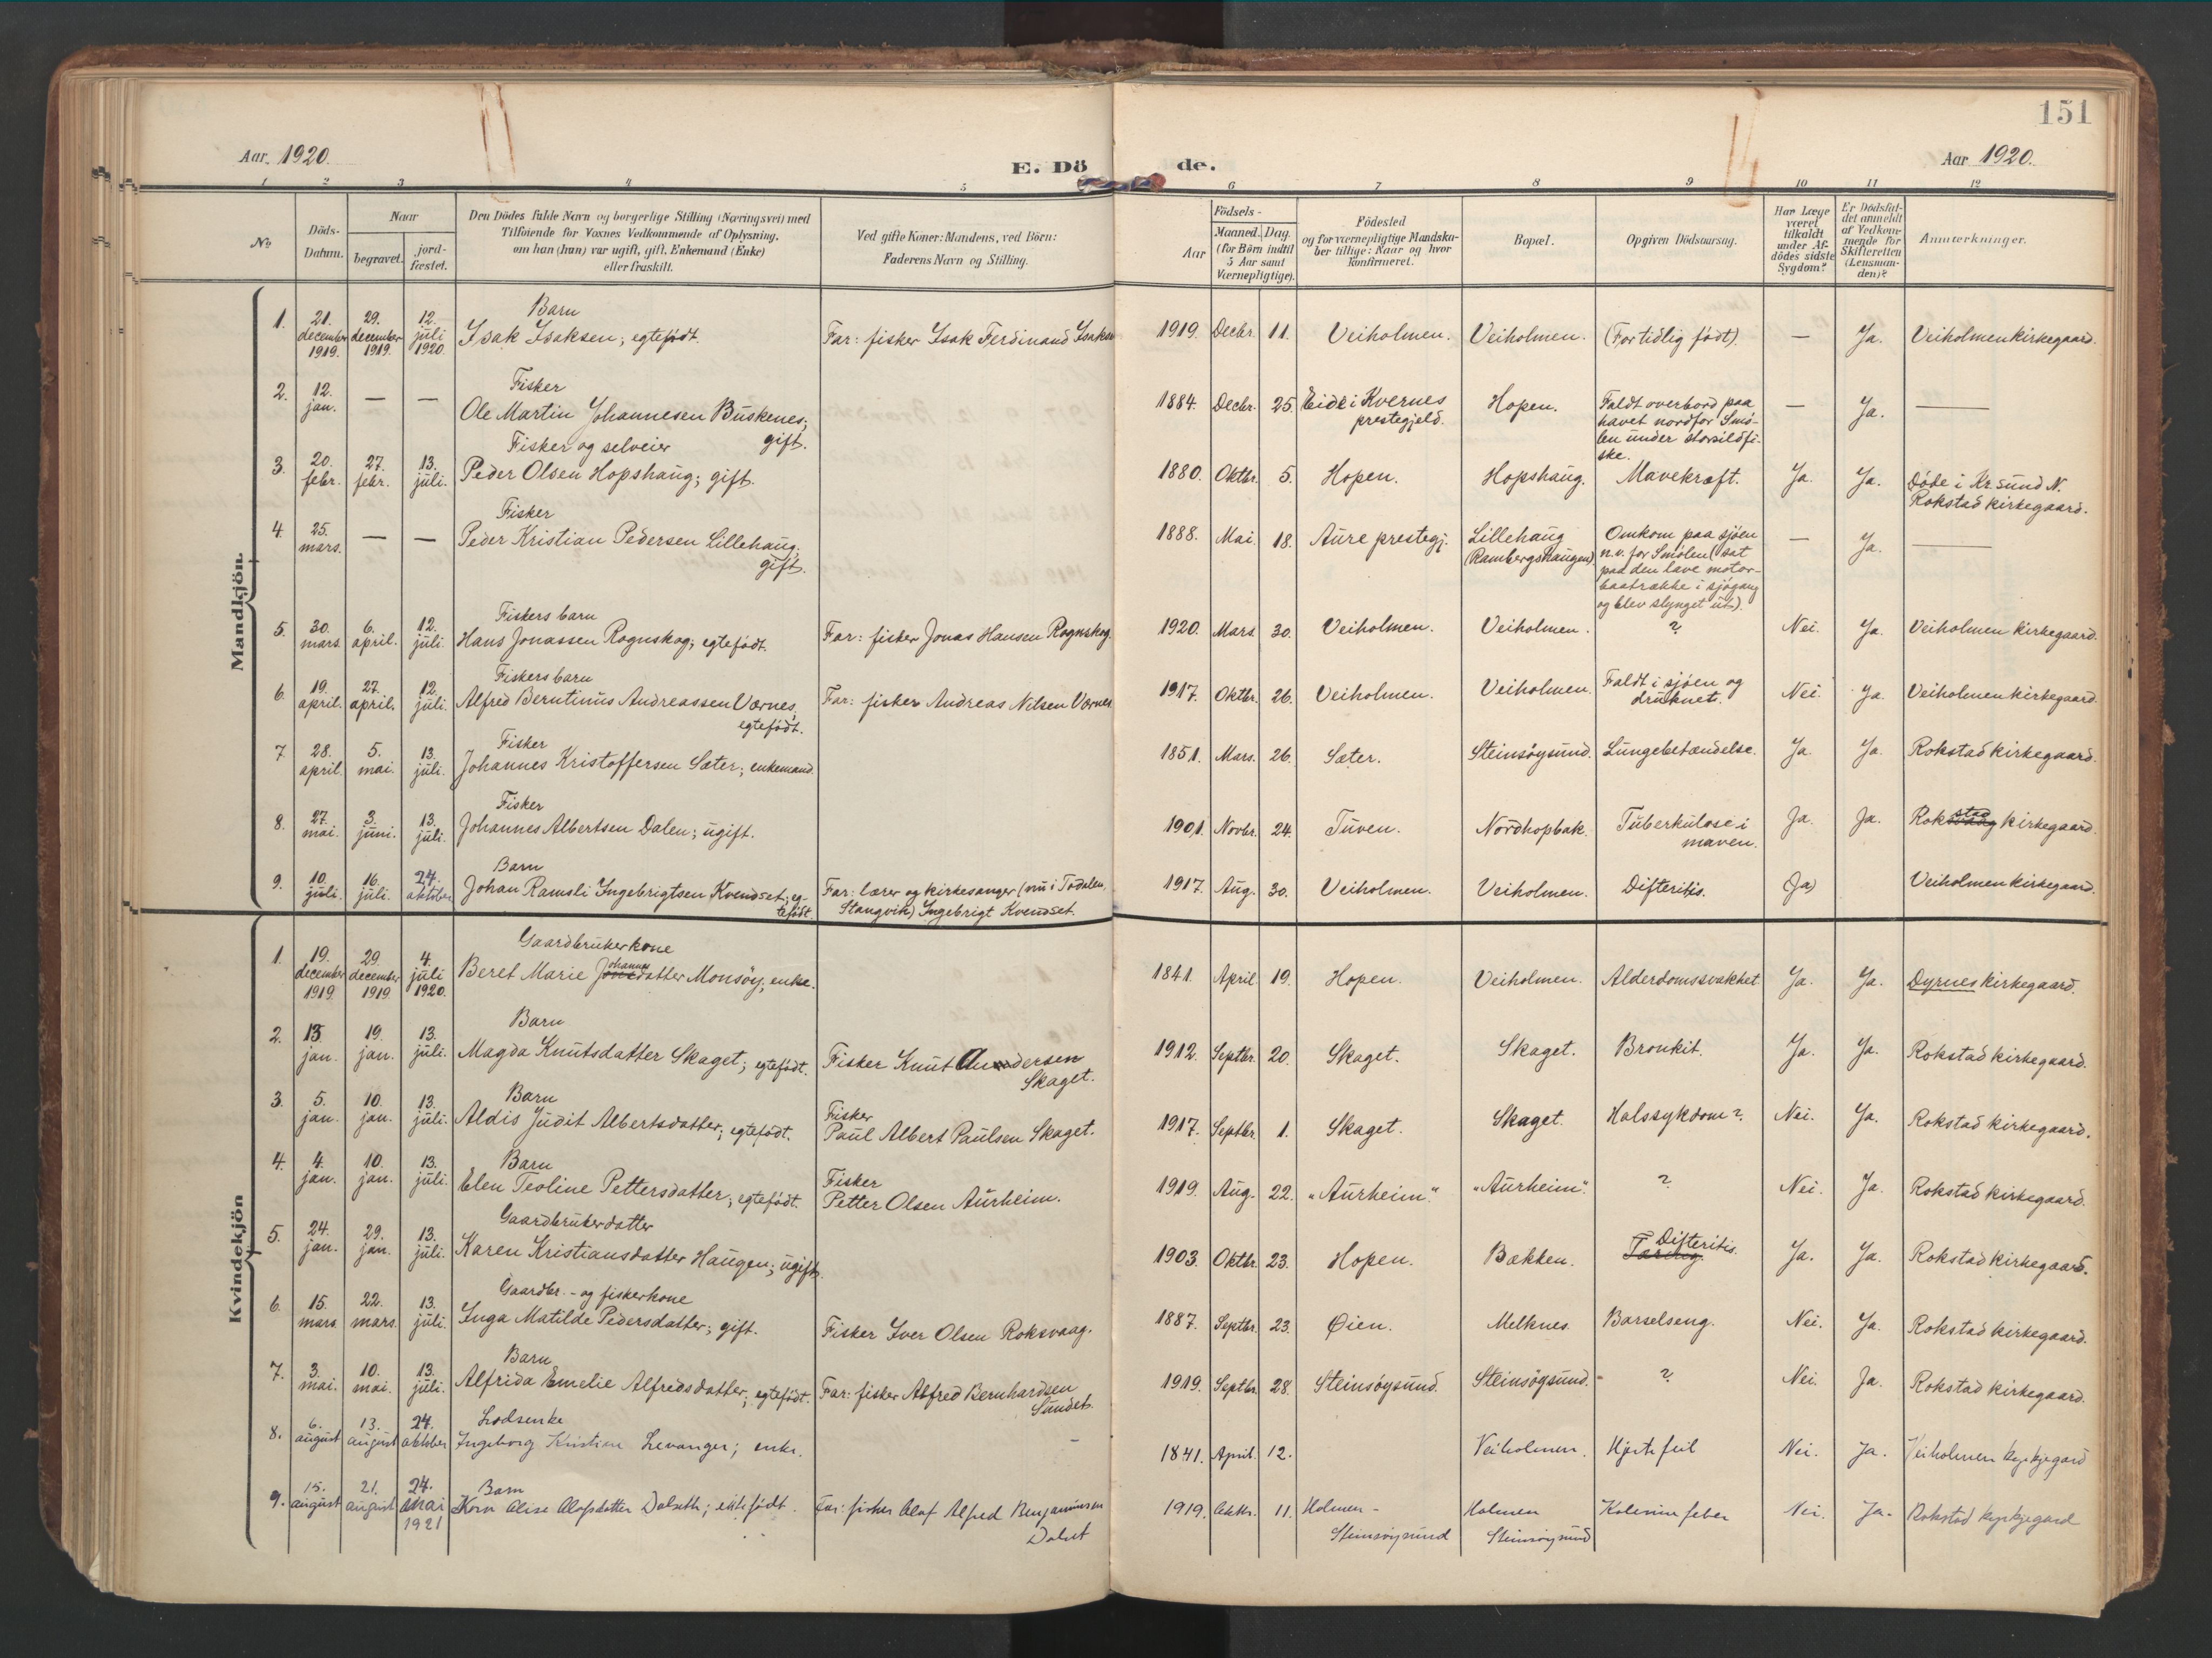 151
Aar 1920.
E. Döde.
Aar 1920.
1 2 3 4 5 6 7 8 9 10 11 12
No
Döds-
Datum.
Naar
begravet.
jord-
fæstet.
Den Dödes fulde Navn og borgerlige Stilling (Næringsvei) med
Tilföiende for Voxnes Vedkommende af Oplysning,
om han (hun) var ugift, gift, Enkemand (Enke)
eller fraskilt.
Ved gifte Koner: Mandens, ved Börn:
Faderens Navn og Stilling.
Födsels-
Aar
Maaned. Dag.
(for Börn indtil
5 Aar samt
Værnepligtige).
Födested
og for værnepligtige Mandska-
ber tillige: Naar og hvor
konfirmeret.
Bopæl.
Opgiven Dödsaarsag.
Har Læge
været
tilkaldt
under Af-
dödes sidste
Sygdom?
Er Dödsfal-
det anmeldt
af Vedkom-
mende for
Skifteretten
(Lensman-
den)?
Anmærkninger.
Mandkjön.
1. 21. december 1919. 29. december 1919. 12. juli 1920. Barn
Isak Isaksen; egtefödt. Far: fisker Isak Ferdinand Isaksen 1919. Decbr. 11. Veiholmen. Veiholmen. (For tidlig födt). — Ja. Veiholmen kirkegaard.
2. 12. jan. — — Fisker
Ole Martin Johannesen Buskenes; gift. 1884. Decbr. 25. Eide i Kvernes prestegjeld. Hopen. Faldt overbord paa
havet nordfor Smö-
len under storsildfi-
ske. — Ja. —
3. 20. febr. 27. febr. 13. juli. Fisker og selveier
Peder Olsen Hopshaug; gift. 1880. Oktbr. 5. Hopen. Hopshaug. Mavekræft. Ja. Ja. Döde i Kr.sund N.
Rokstad kirkegaard.
4. 25. mars. — — Fisker
Peder Kristian Pedersen Lillehaug; gift. 1888. Mai. 18. Aure prestegj. Lillehaug
(Rambergshaugen) Omkom paa sjöen
n.v. for Smölen (sat
paa den lave motor-
baatrække i sjögang
og blev slynget ut). — Ja. —
5. 30. mars. 6. april. 12. juli. Fiskers barn
Hans Jonassen Rognskog; egtefödt. Far: fisker Jonas Hansen Rognskog. 1920. Mars. 30. Veiholmen. Veiholmen. ? Nei. Ja. Veiholmen kirkegaard.
6. 19. april. 27. april. 12. juli. Fiskers barn
Alfred Berntinus Andreassen Værnes, egtefödt. Far: fisker Andreas Nilsen Værnes 1917. Oktbr. 26. Veiholmen. Veiholmen. Faldt i sjöen og
druknet. Nei. Ja. Veiholmen kirkegaard.
7 28. april. 5. mai. 13. juli. Fisker
Johannes Kristoffersen Sæter; enkemand. 1851. Mars. 26. Sæter. Steinsöysund. Lungebetændelse. Ja. Ja. Rokstad kirkegaard.
8. 27. mai. 3. juni. 13. juli. Fisker
Johannes Albertsen Dalen; ugift. 1901. Novbr. 24. Tuven. Nordhopbak. Tuberkulose i
maven. Ja. Ja. Rokstad kirkegaard.
9. 10. juli. 16. juli. 24. oktober Barn
Johan Ramsli Ingebrigtsen Kvendset; eg-
tefödt. Far: lærer og kirkesanger (nu i Todalen,
Stangvik) Ingebrigt Kvendset. 1917. Aug. 30. Veiholmen. Veiholmen. Difteritis. (Ja) Veiholmen kirkegaard.
Kvindekjön
1. 19. december 1919. 29. december 1919. 4. juli 1920. Gaardbrukerkone
Beret Marie Johannesdatter Monsöy; enke. 1841. April. 19. Hopen. Veiholmen. Alderdomssvakhet. Ja. Ja. Dyrnes kirkegaard.
2. 13. jan. 19. jan. 13. juli. Barn
Magda Knutsdatter Skaget; egtefödt. Fisker Knut Andersen
Skaget. 1912. Septbr. 20. Skaget. Skaget. Bronkit. Ja. Ja. Rokstad kirkegaard.
3. 5. jan. 10. jan. 13. juli. Barn
Aldis Judit Albertsdatter; egtefödt. Fisker
Paul Albert Paulsen Skaget. 1917. Septbr. 1. Skaget. Skaget. Halssykdom?. Nei. Ja. Rokstad kirkegaard.
4. 4. jan. 10. jan. 13. juli. Barn
Elen Teoline Pettersdatter; egtefödt. Fisker
Petter Olsen Aurheim. 1919. Aug. 22. "Aurheim". "Aurheim". ? Nei. Ja. Rokstad kirkegaard.
5. 24. jan. 29. jan. 13. juli. Gaardbrukerdatter
Karen Kristiansdatter Haugen; ugift. 1903. Oktbr. 23. Hopen. Bækken. Tæring. Difteritis. Ja. Ja. Rokstad kirkegaard.
6. 15. mars. 22. mars. 13. juli. Gaardbr.- og fiskerkone
Inga Matilde Pedersdatter; gift. Fisker Iver Olsen Roksvaag. 1887. Septbr. 23. Øien. Melknes. Barselseng. Nei. Ja. Rokstad kirkegaard.
7. 3. mai. 10. mai. 13. juli. Barn
Alfrida Emelie Alfredsdatter; egtefödt. Far: fisker Alfred Bernhardsen
Sundet. 1919. Septbr. 28. Steinsöysund. Steinsöysund. - ? Nei. Ja. Rokstad kirkegaard.
8. 6. august 13. august 24. oktober Lodsenke
Ingeborg Kristine Levanger; enke. 1841. April. 12. Veiholmen. Hjertefeil Nei. Ja. Veiholmen kyrkjegard
9. 15. august 21. august 24. mai 1921 Barn
Korn Alise Olafsdatter Dalseth; ektefödt. Far: fisker Olaf Alfred Benjaminsen
Dalset 1919. Oktbr. 11. Holmen -
Steinsöysund Holmen
Steinsöysund Kolerine feber Nei. Ja. Rokstad kyrkjegard